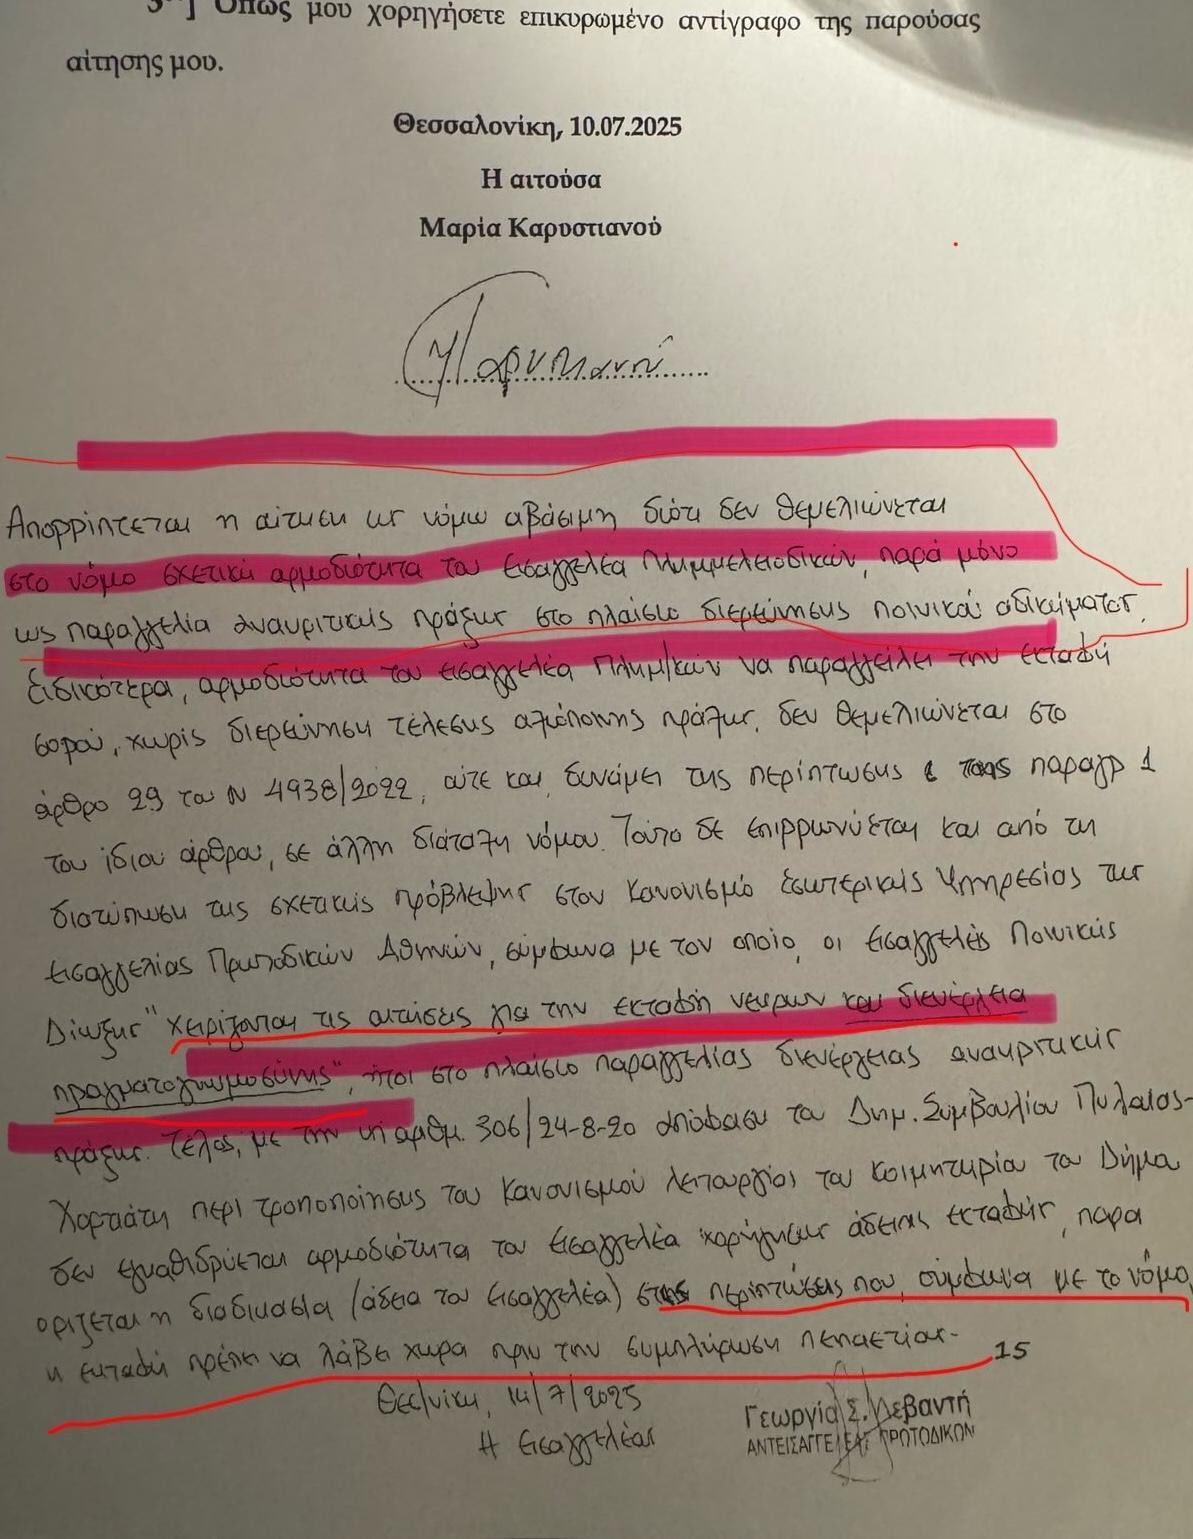 3ον] Όπως μου χορηγήσετε επικυρωμένο αντίγραφο της παρούσας
αίτησης μου.
Θεσσαλονίκη, 10.07.2025
Η αιτούσα
Μαρία Καρυστιανού
Απορρίπτεται η αίτηση ως νόμω αβάσιμη διότι δεν θεμελιώνεται
στο νόμο σχετική αρμοδιότητα του Εισαγγελέα Πλημμελειοδικών, παρά μόνο
ως παραγγελία ανακριτικής πράξης στο πλαίσιο διερεύνησης ποινικού αδικήματος.
Ειδικότερα, αρμοδιότητα του εισαγγελέα Πλημ/κών να παραγγείλει την εκταφή
σορού, χωρίς διερεύνηση τέλεσης αξιόποινης πράξης, δεν θεμελιώνεται στο
άρθρο 29 του Ν 4938/2022, ούτε και, δυνάμει της περίπτωσης ι της παραγρ 1
του ίδιου άρθρου, σε άλλη διάταξη νόμου. Τούτο δε επιρρωνύεται και από τη
διατύπωση της σχετικής πρόβλεψης στον Κανονισμό Εσωτερικής Υπηρεσίας της
Εισαγγελίας Πρωτοδικών Αθηνών, σύμφωνα με τον οποίο, οι Εισαγγελείς Ποινικής
Δίωξης "χειρίζονται τις αιτήσεις για την εκταφή νεκρών και διενέργεια
πραγματογνωμοσύνης", ήτοι στο πλαίσιο παραγγελίας διενέργειας ανακριτικής
πράξης. Τέλος, με την υπ αριθμ. 306/24-8-20 απόφαση του Δημ. Συμβουλίου Πυλαίας-
Χορτιάτη περί τροποποίησης του Κανονισμού λειτουργίας του κοιμητηρίου του Δήμου
δεν εγκαθιδρύεται αρμοδιότητα του Εισαγγελέα χορήγησης άδειας εκταφής, παρά
ορίζεται η διαδικασία (άδεια του Εισαγγελέα) στις περιπτώσεις που, σύμφωνα με το νόμο,
η εκταφή πρέπει να λάβει χώρα πριν την συμπλήρωση πενταετίας-
15
Θεσ/νίκη, 14/7/2025
Η Εισαγγελέας
Γεωργία Σ. Λεβαντή
ΑΝΤΕΙΣΑΓΓΕΛΕΑΣ ΠΡΩΤΟΔΙΚΩΝ